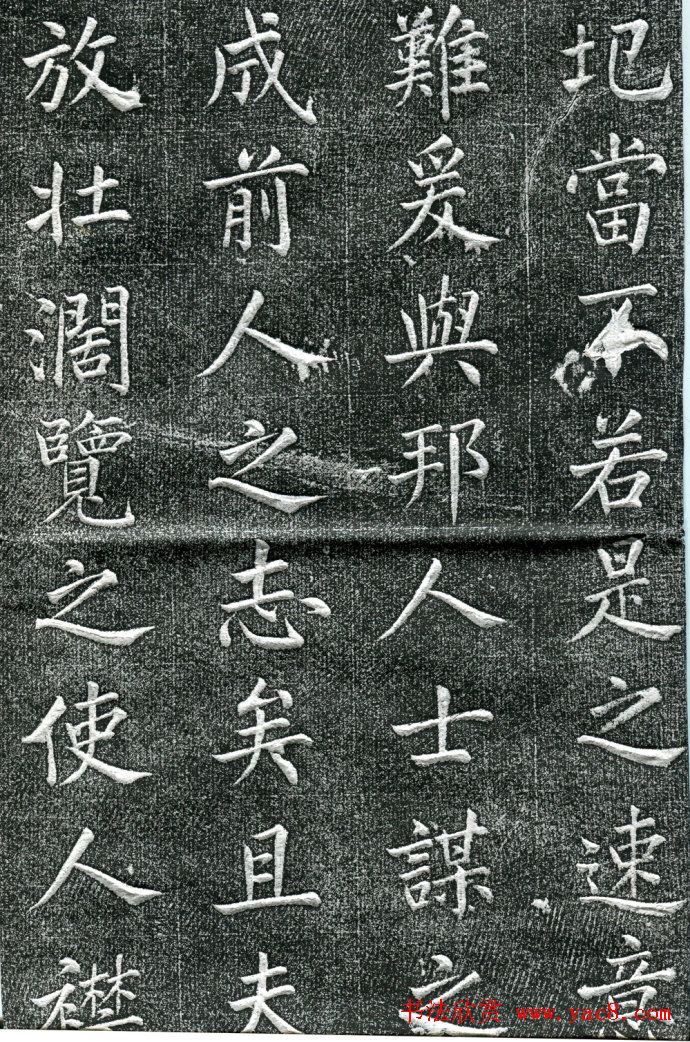 圯當不若是之速意
難爰與邦人士謀之
成前人之志矣且夫
放壮濶覽之使人襟
书法欣赏 www.yac8.com